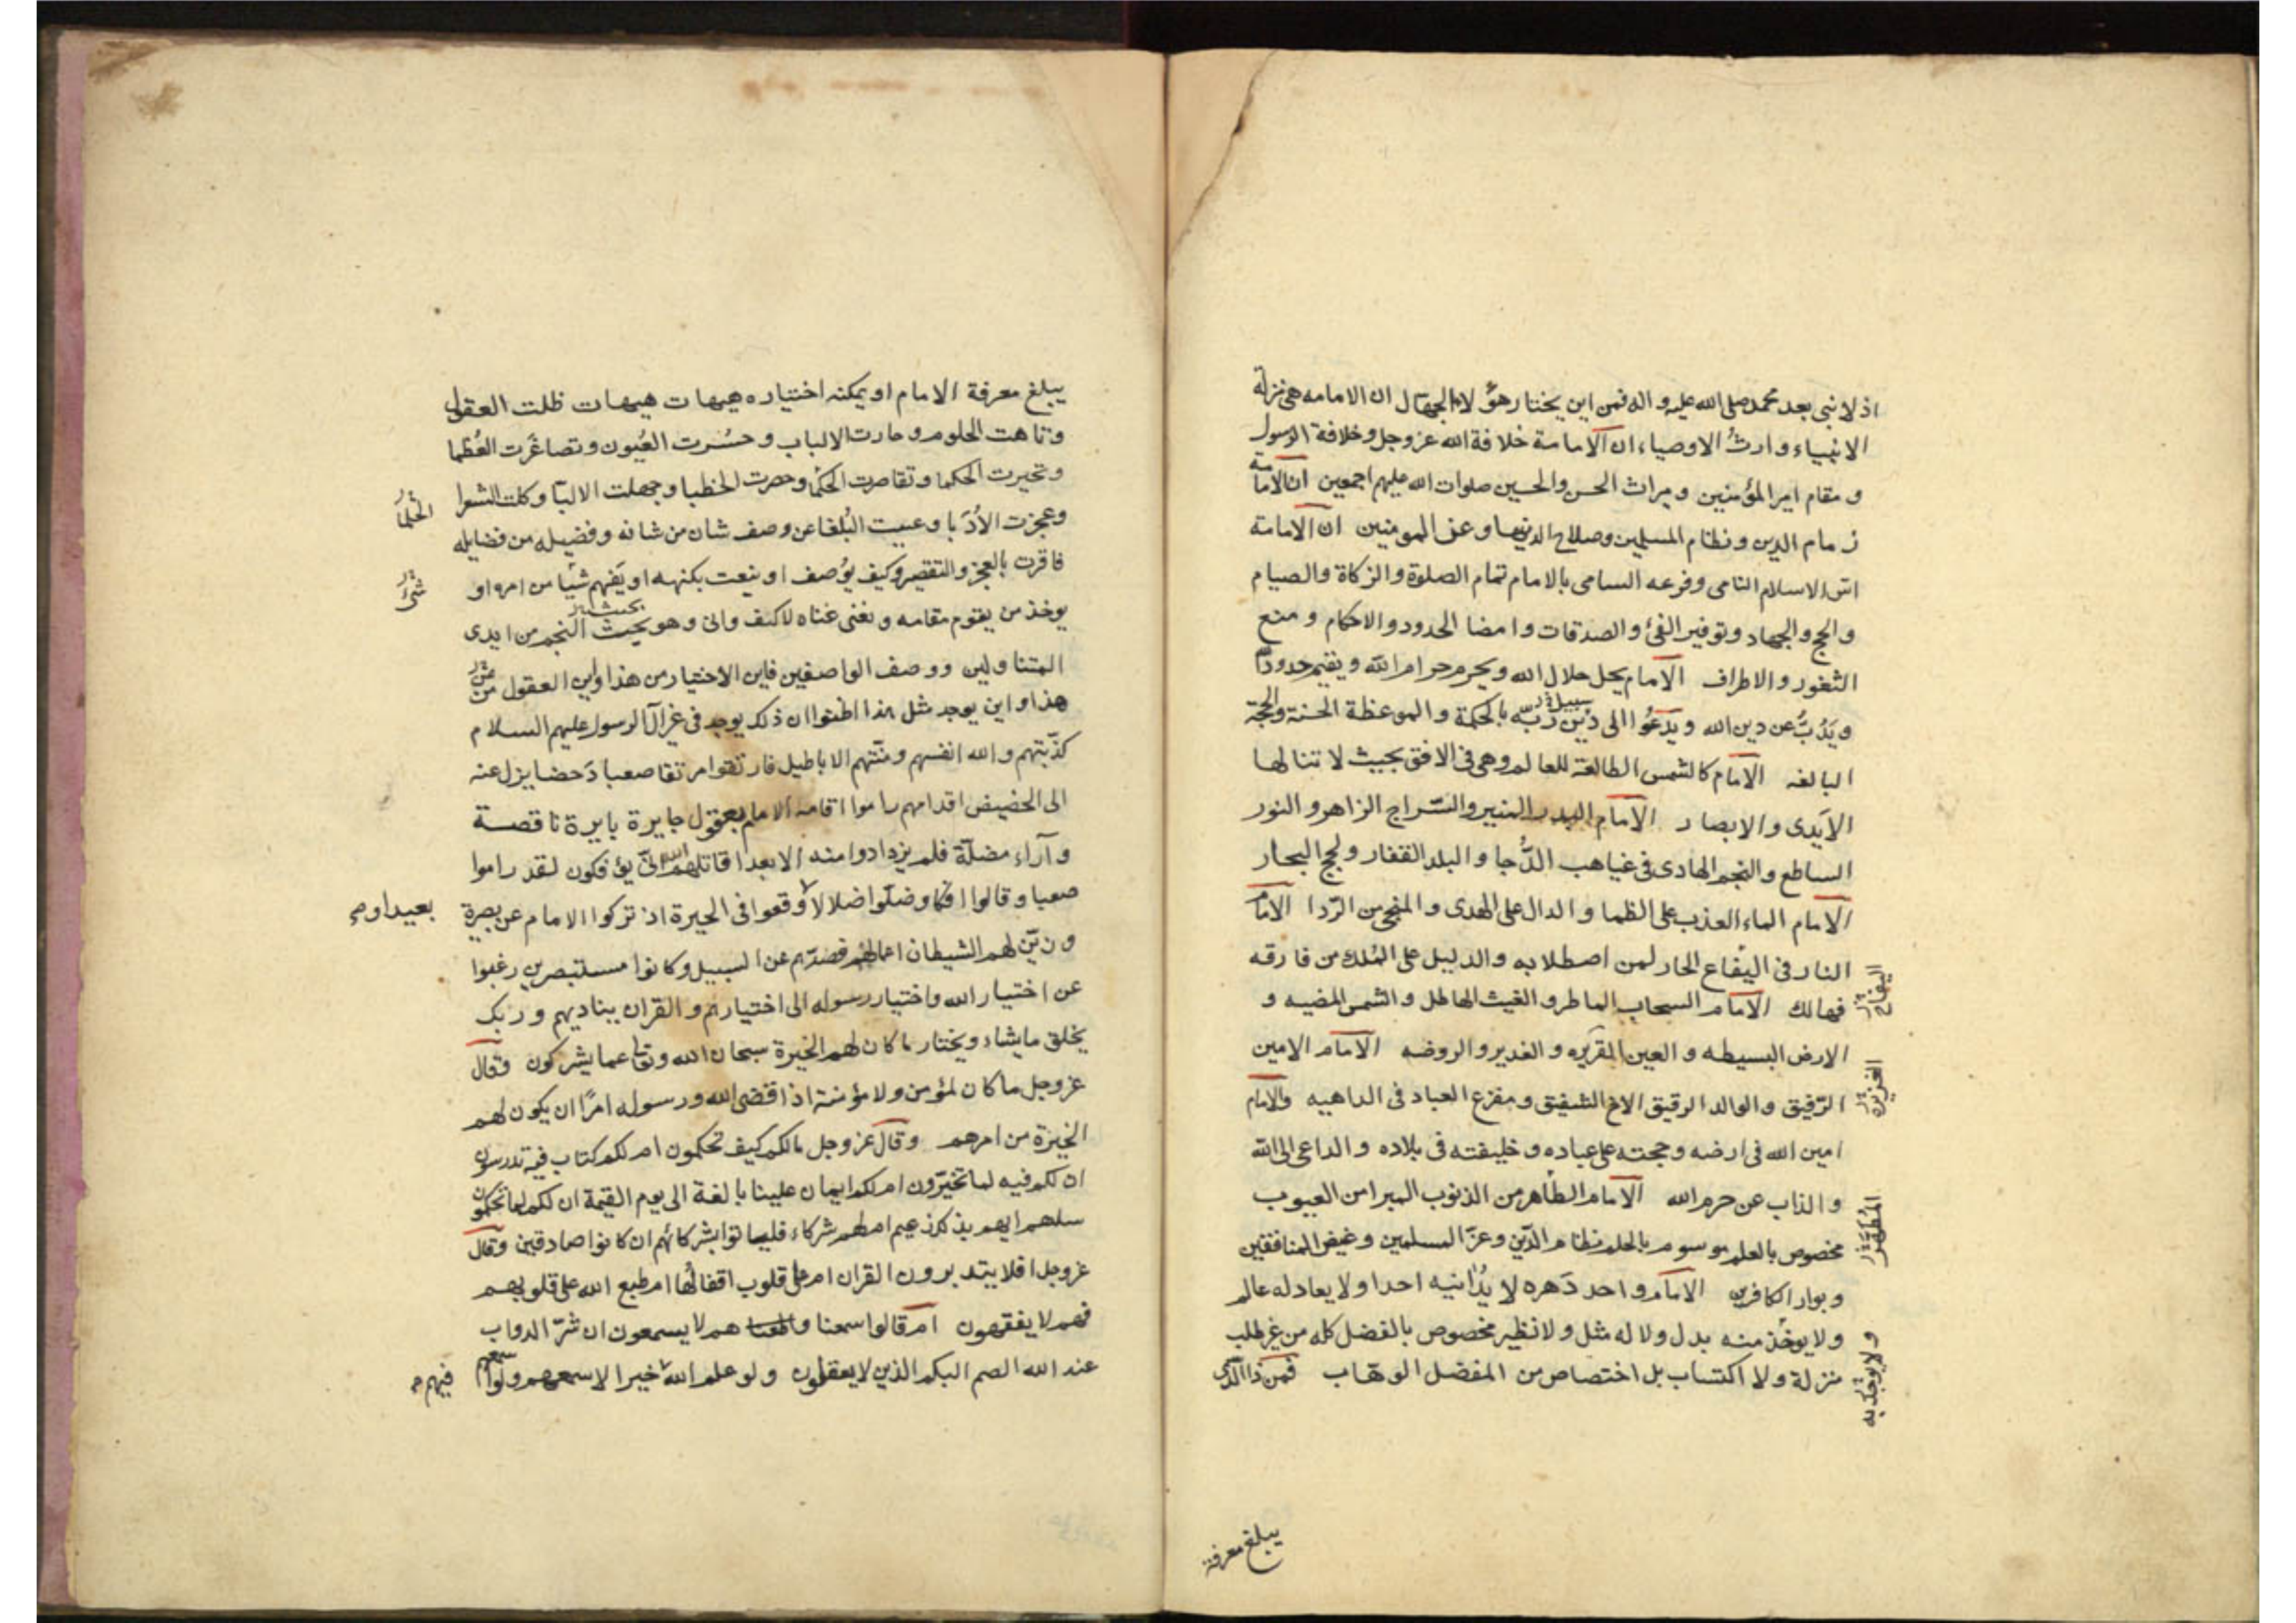 اذ لا نبى بعد محمد صلى الله عليه و اله فمن اين يختار هؤلاء الجهال ان الامامه هى منزلة
الانبياء و ارث الاوصياء ان الامامة خلافة الله عز و جل و خلافة الرسول
و مقام امير المؤمنين و ميراث الحسن والحسين صلوات الله عليهم اجمعين ان الامامة
زمام الدين و نظام المسلمين وصلاح الدنيا و عز المومنين ان الامامة
اس الاسلام النامى وفرعه السامى بالامام تمام الصلوة والزكاة والصيام
و الحج و الجهاد و توفير الفئ و الصدقات و امضا الحدود والاحكام و منع
الثغور و الاطراف الامام يحل حلال الله و يحرم حرام الله و يقيم حدود
و يذب عن دين الله و يدعوا الى دين ربه بالحكمة و الموعظة الحسنة والحجة
سبيل
البالغه الامام كالشمس الطالعة للعالم وهى فى الافق بحيث لا تنالها
الايدى و الابصار الامام البدر المنير والسراج الزاهر و النور
الساطع و النجم الهادى فى غياهب الدجا و البلد القفار و لجج البحار
الامام الماء العذب على الظما و الدال على الهدى و المنجى من الردا الامام
النار فى اليفاع الحار لمن اصطلا به والدليل على الملك من فارقه
اليفاع
فهالك الامام السحاب الماطر و الغيث الهاطل و الشمس المضيه و
الارض البسيطه و العين و الغدير و الروضه الامام الامين
الغزيرة
الرفيق و الوالد الرقيق الاخ الشفيق و مفزع العباد فى الداهيه والامام
امين الله فى ارضه و حجته على عباده و خليفته فى بلاده و الداعى الى الله
و الذاب عن حرم الله الامام الطاهر من الذنوب المبرا من العيوب
المطهر
مخصوص بالعلم موسوم بالحلم نظام الدين وعز المسلمين و غيض المنافقين
و بوار الكافرين الامام واحد دهره لا يدانيه احدا و لا يعادله عالم
ولا يوخذ منه بدل ولا له مثل و لا نظير مخصوص بالفضل كله من غير طلب
و لا يوجد به
منزلة و لا اكتساب بل اختصاص من المفضل الوهاب فمن ذا الذى
يبلغ معرفة
يبلغ معرفة الامام او يمكنه اختياره هيهات هيهات ظلت العقول
وتاهت الحلوم و حارت الالباب و حسرت العيون و تصاغرت العظما
و تحيرت الحكما و تقاصرت الحكما و حصرت الخطبا و جهلت الالبا و كلت الشعرا
الحلما
وعجزت الأدبا و عييت البلغا عن وصف شان من شانه و فضيله من فضايله
فاقرت بالعجز والتقصير و كيف يوصف او ينعت بكنهه او يفهم شيا من امره او
شئ
يوخذ من يقوم مقامه و يغنى غناه لا كيف وانى و هو بحيث النجم من ايدى
المتناولين و وصف الواصفين فاين الاختيار من هذا و اين العقول من
هذا و اين يوجد مثل هذا اظنوا ان ذلك يوجد فى غير آل الرسول عليهم السلام
كذبتهم و الله انفسهم و منتهم الاباطيل فارتقوا مرتقا صعبا دحضا يزل عنه
الى الحضيض اقدامهم راموا اقامه الامام بعقول جايرة بايرة ناقصة
و آراء مضلة فلم يزدادوا منه الا بعدا قاتلهم الله انى يؤفكون لقد راموا
صعبا و قالوا افكا و ضلوا ضلالا و وقعوا فى الحيرة اذ تركوا الامام عن بصيرة
بعيدا و
و زين لهم الشيطان اعمالهم فصدهم عن السبيل و كانوا مستبصرين رغبوا
عن اختيار الله و اختيار رسوله الى اختيارهم و القران يناديهم و ربك
يخلق ما يشاء و يختار ما كان لهم الخيرة سبحان الله و تعالى عما يشركون وقال
عز وجل ما كان لمؤمن ولا مؤمنة اذا قضى الله و رسوله امرا ان يكون لهم
الخيرة من امرهم وقال عز وجل مالكم كيف تحكمون ام لكم كتاب فيه تدرسون
ان لكم فيه لما تخيرون ام لكم ايمان علينا بالغة الى يوم القيمة ان لكم لما تحكمون
سلهم ايهم بذلك زعيم ام لهم شركاء فلياتوا بشركائهم ان كانوا صادقين وقال
عز وجل افلا يتدبرون القران ام على قلوب اقفالها ام طبع الله على قلوبهم
فهم لا يفقهون ام قالوا سمعنا و هم لا يسمعون ان شر الدواب
عند الله الصم البكم الذين لا يعقلون و لو علم الله خيرا لاسمعهم ولو اسمعهم
فيهم